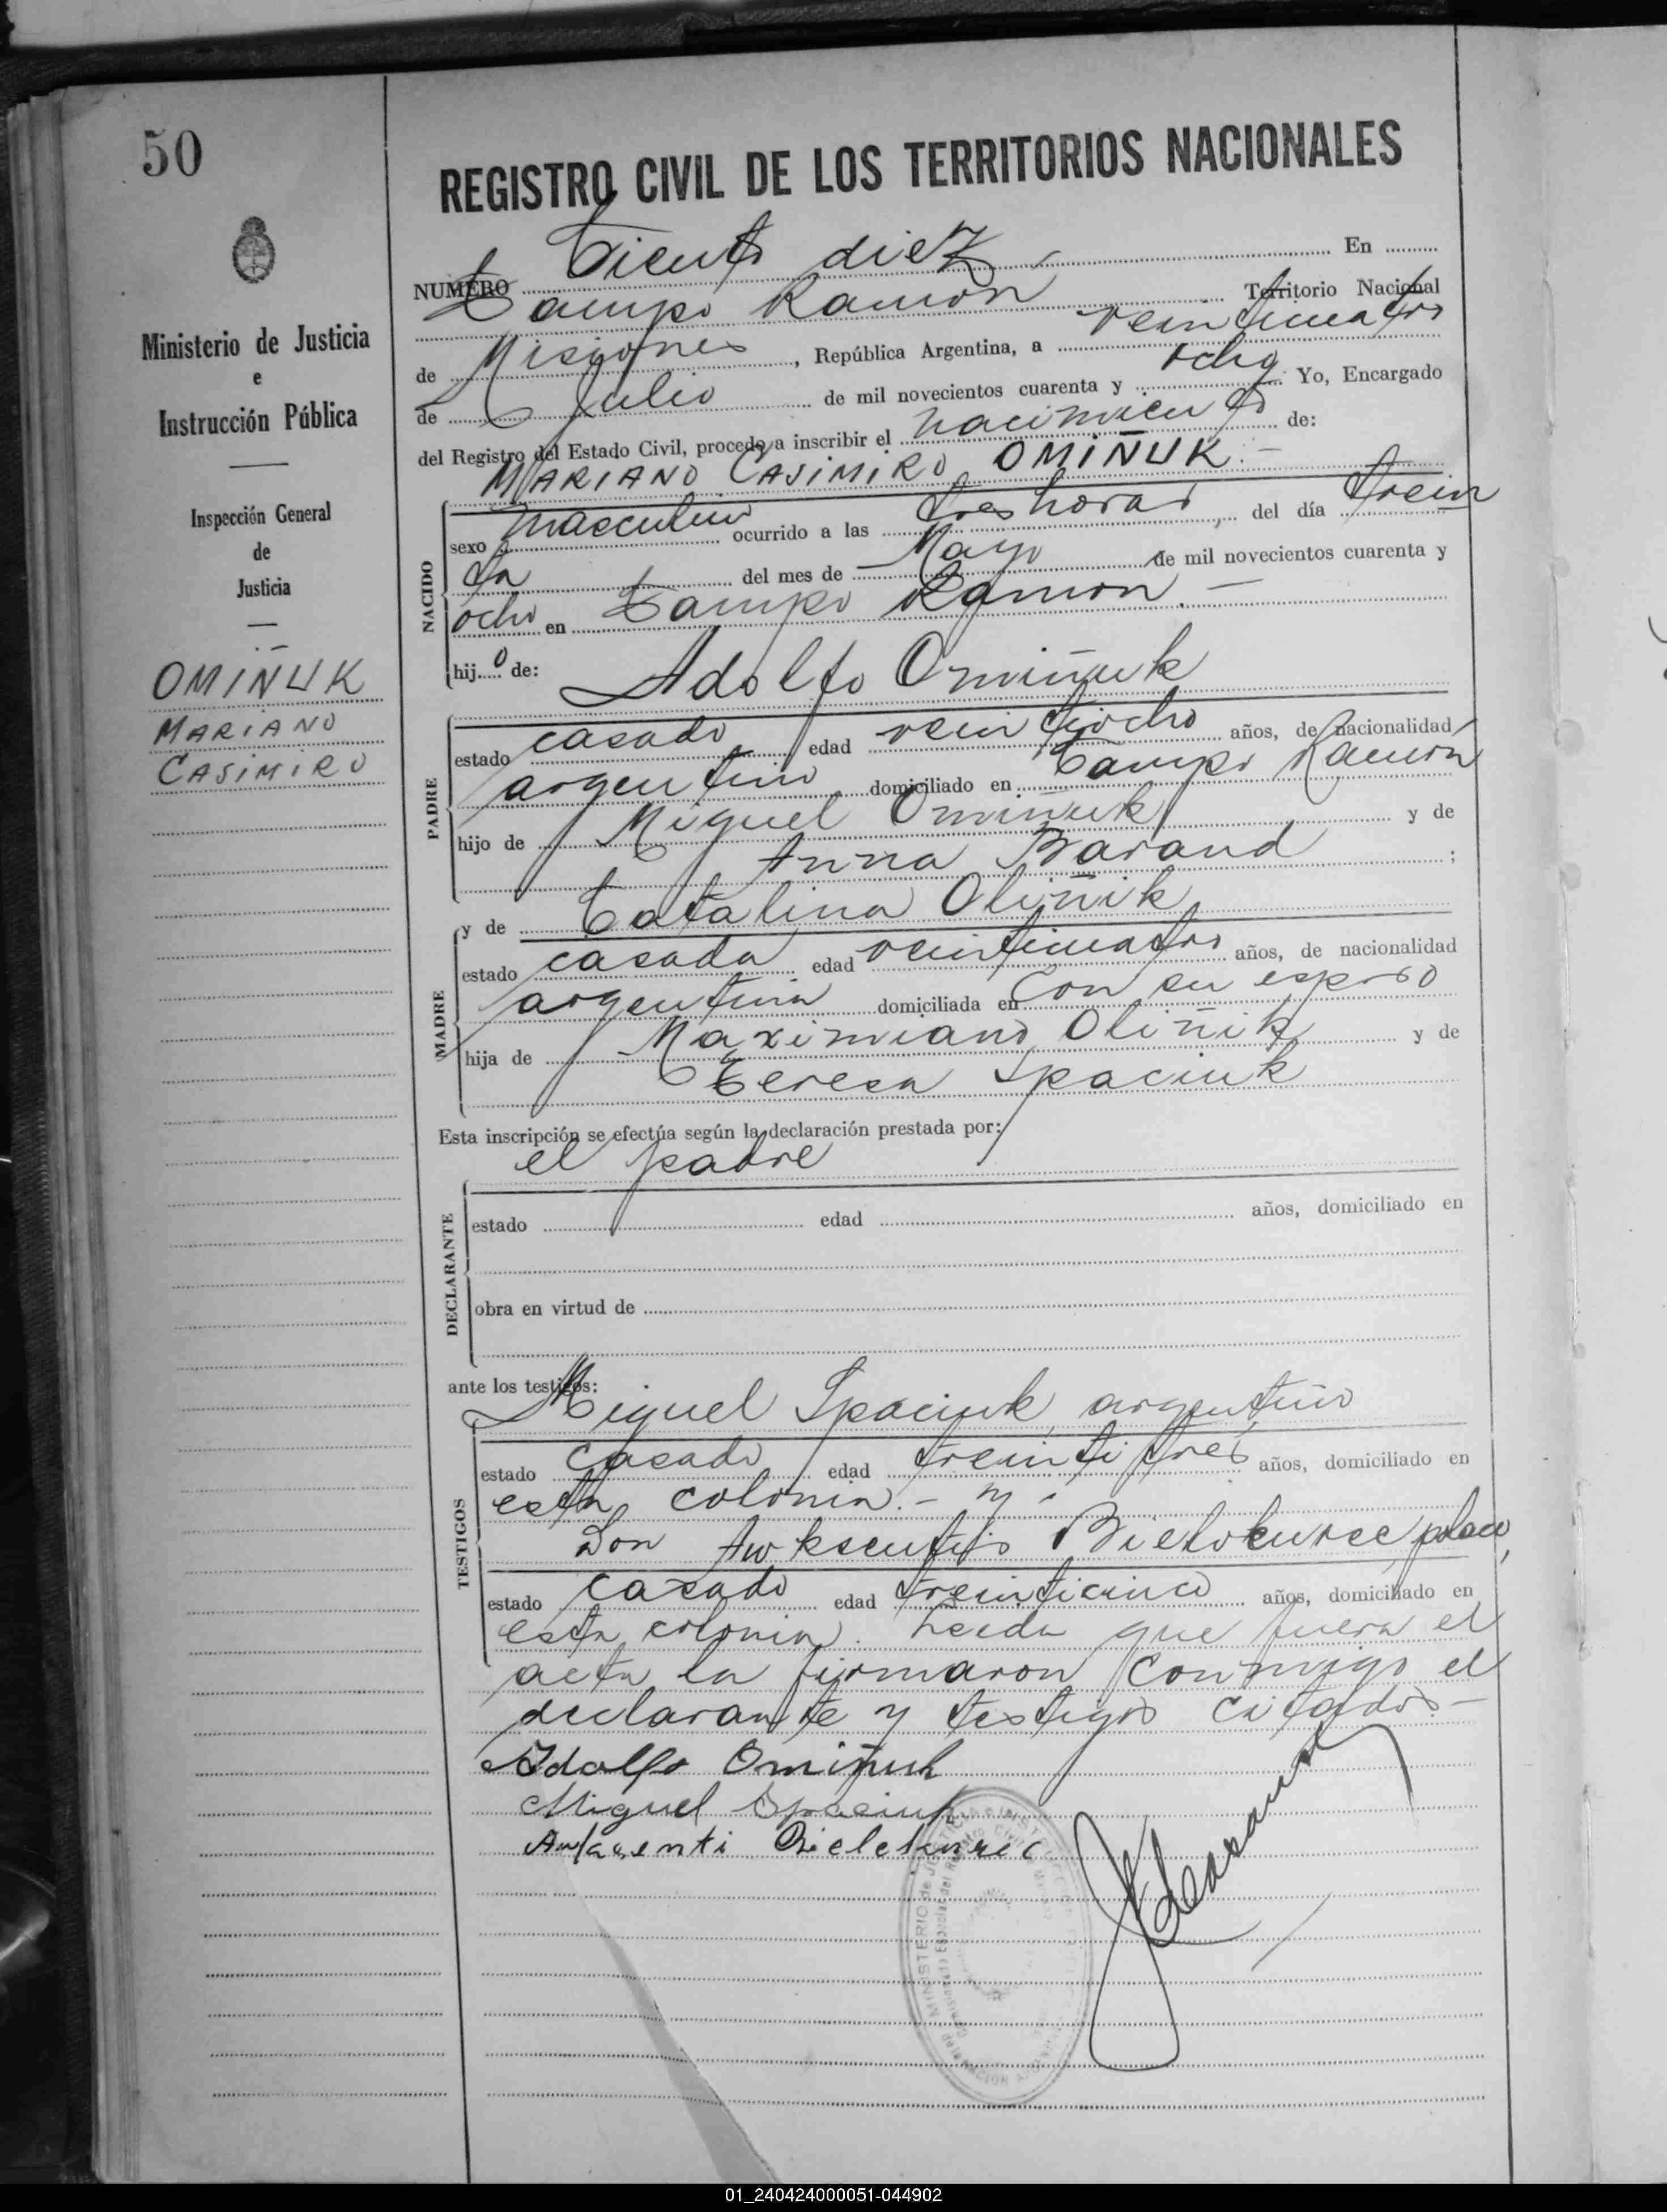 50
Ministerio de Justicia
e
Instrucción Pública
Inspección General
de
Justicia
OMIÑUK
MARIANO
CASIMIRO
REGISTRO CIVIL DE LOS TERRITORIOS NACIONALES
NUMERO Ciento diez En
Campo Ramón Territorio Nacional
de Misiones, República Argentina, a veinticuatro
de Julio de mil novecientos cuarenta y ocho Yo, Encargado
del Registro del Estado Civil, procedo a inscribir el nacimiento de:
MARIANO CASIMIRO OMIÑUK.-
NACIDO
sexo masculino ocurrido a las tres horas, del día trein
ta del mes de Mayo de mil novecientos cuarenta y
ocho en Campo Ramon.-
hijo de: Adolfo Omiñuk
PADRE
estado casado edad veintiocho años, de nacionalidad
argentino domiciliado en Campo Ramón
hijo de Miguel Omiñuk y de
Anna Barand;
y de Catalina Oliñik
MADRE
estado casada edad veinticuatro años, de nacionalidad
argentina domiciliada en con su esposo
hija de Maximiano Oliñik y de
Teresa Spaciuk
Esta inscripción se efectúa según la declaración prestada por:
el padre
DECLARANTE
estado edad años, domiciliado en
obra en virtud de
ante los testigos:
Miguel Spaciuk, argentino
TESTIGOS
estado casado edad treintitres años, domiciliado en
esta colonia.- y.
Don Awksentijo
estado casado edad treinticinco años, domiciliado en
esta colonia. Leida que fuera el
acta la firmaron conmigo el
declarante y testigos citados.-
Adolfo Omiñuk
Miguel Spaciuk
01_240424000051-044902